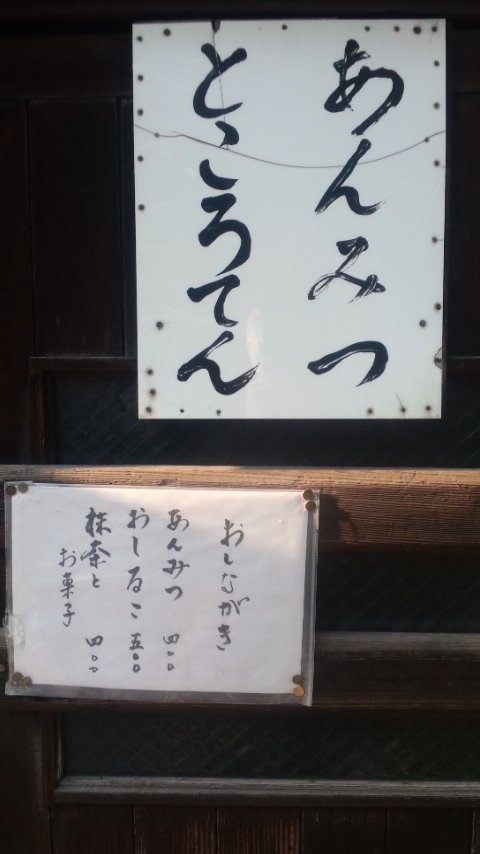 あんみつ
ところてん
おしながき
あんみつ 四〇〇
おしるこ 五〇〇
抹茶と
お菓子 四〇〇